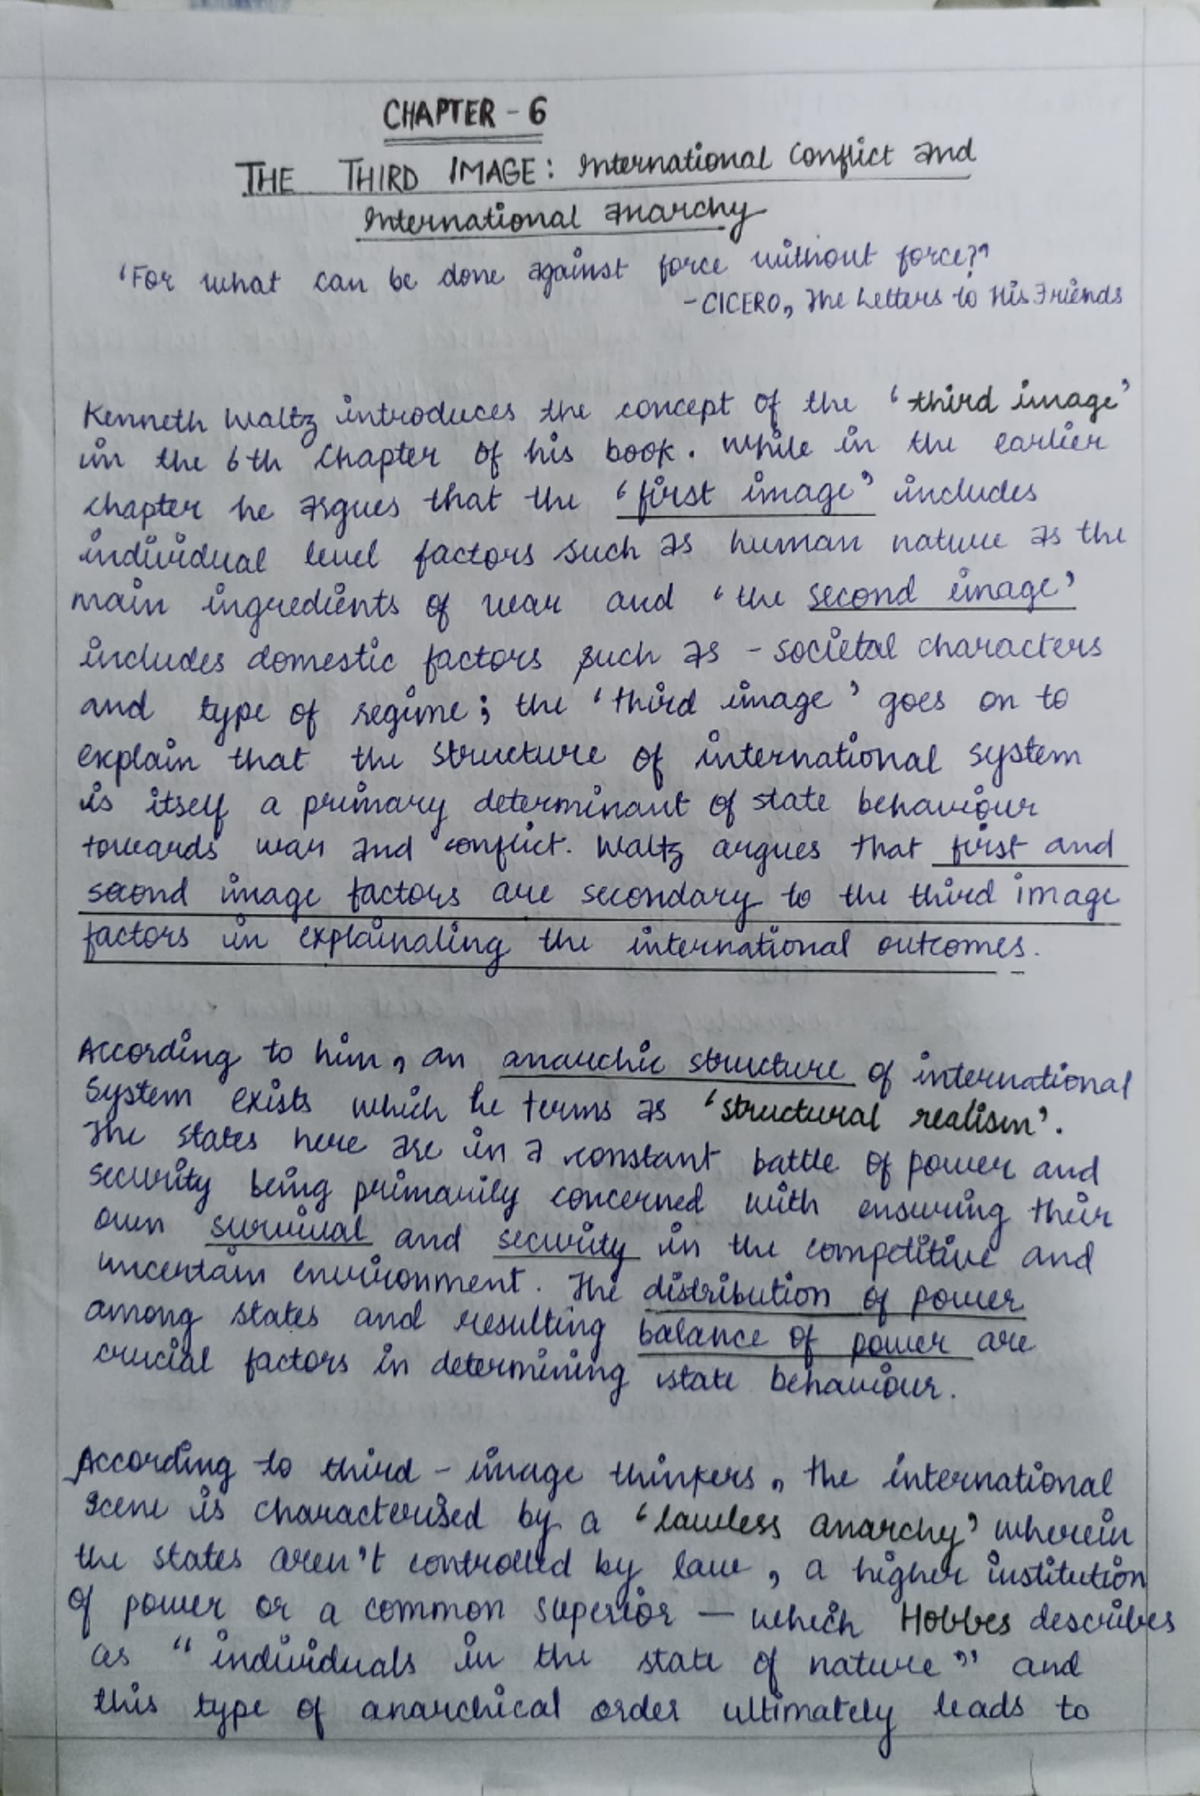 CHAPTER - 6
THE THIRD IMAGE: International Conflict and
International Anarchy
'For what can be done against force without force?'
- CICERO, The Letters to His Friends
Kenneth Waltz introduces the concept of the 'third image'
in the 6th Chapter of his book. While in the earlier
chapter he argues that the 'first image' includes
individual level factors such as human nature as the
main ingredients of war and 'the second image'
includes domestic factors such as - societal characters
and type of regime; the 'third image' goes on to
explain that the structure of international system
is itself a primary determinant of state behaviour
towards war and conflict. Waltz argues that first and
second image factors are secondary to the third image
factors in explainaling the international outcomes.
According to him, an anarchic structure of international
System exists which he terms as 'structural realism'.
The states here are in a constant battle of power and
security being primarily concerned with ensuring their
own survival and security in the competitive and
uncertain environment. The distribution of power
among states and resulting balance of power are
crucial factors in determining state behaviour.
According to third - image thinkers, the international
Scene is characterised by a 'lawless anarchy' wherein
the states aren't controlled by law, a higher institution
of power or a common superior — which Hobbes describes
as "individuals in the state of nature" and
this type of anarchical order ultimately leads to